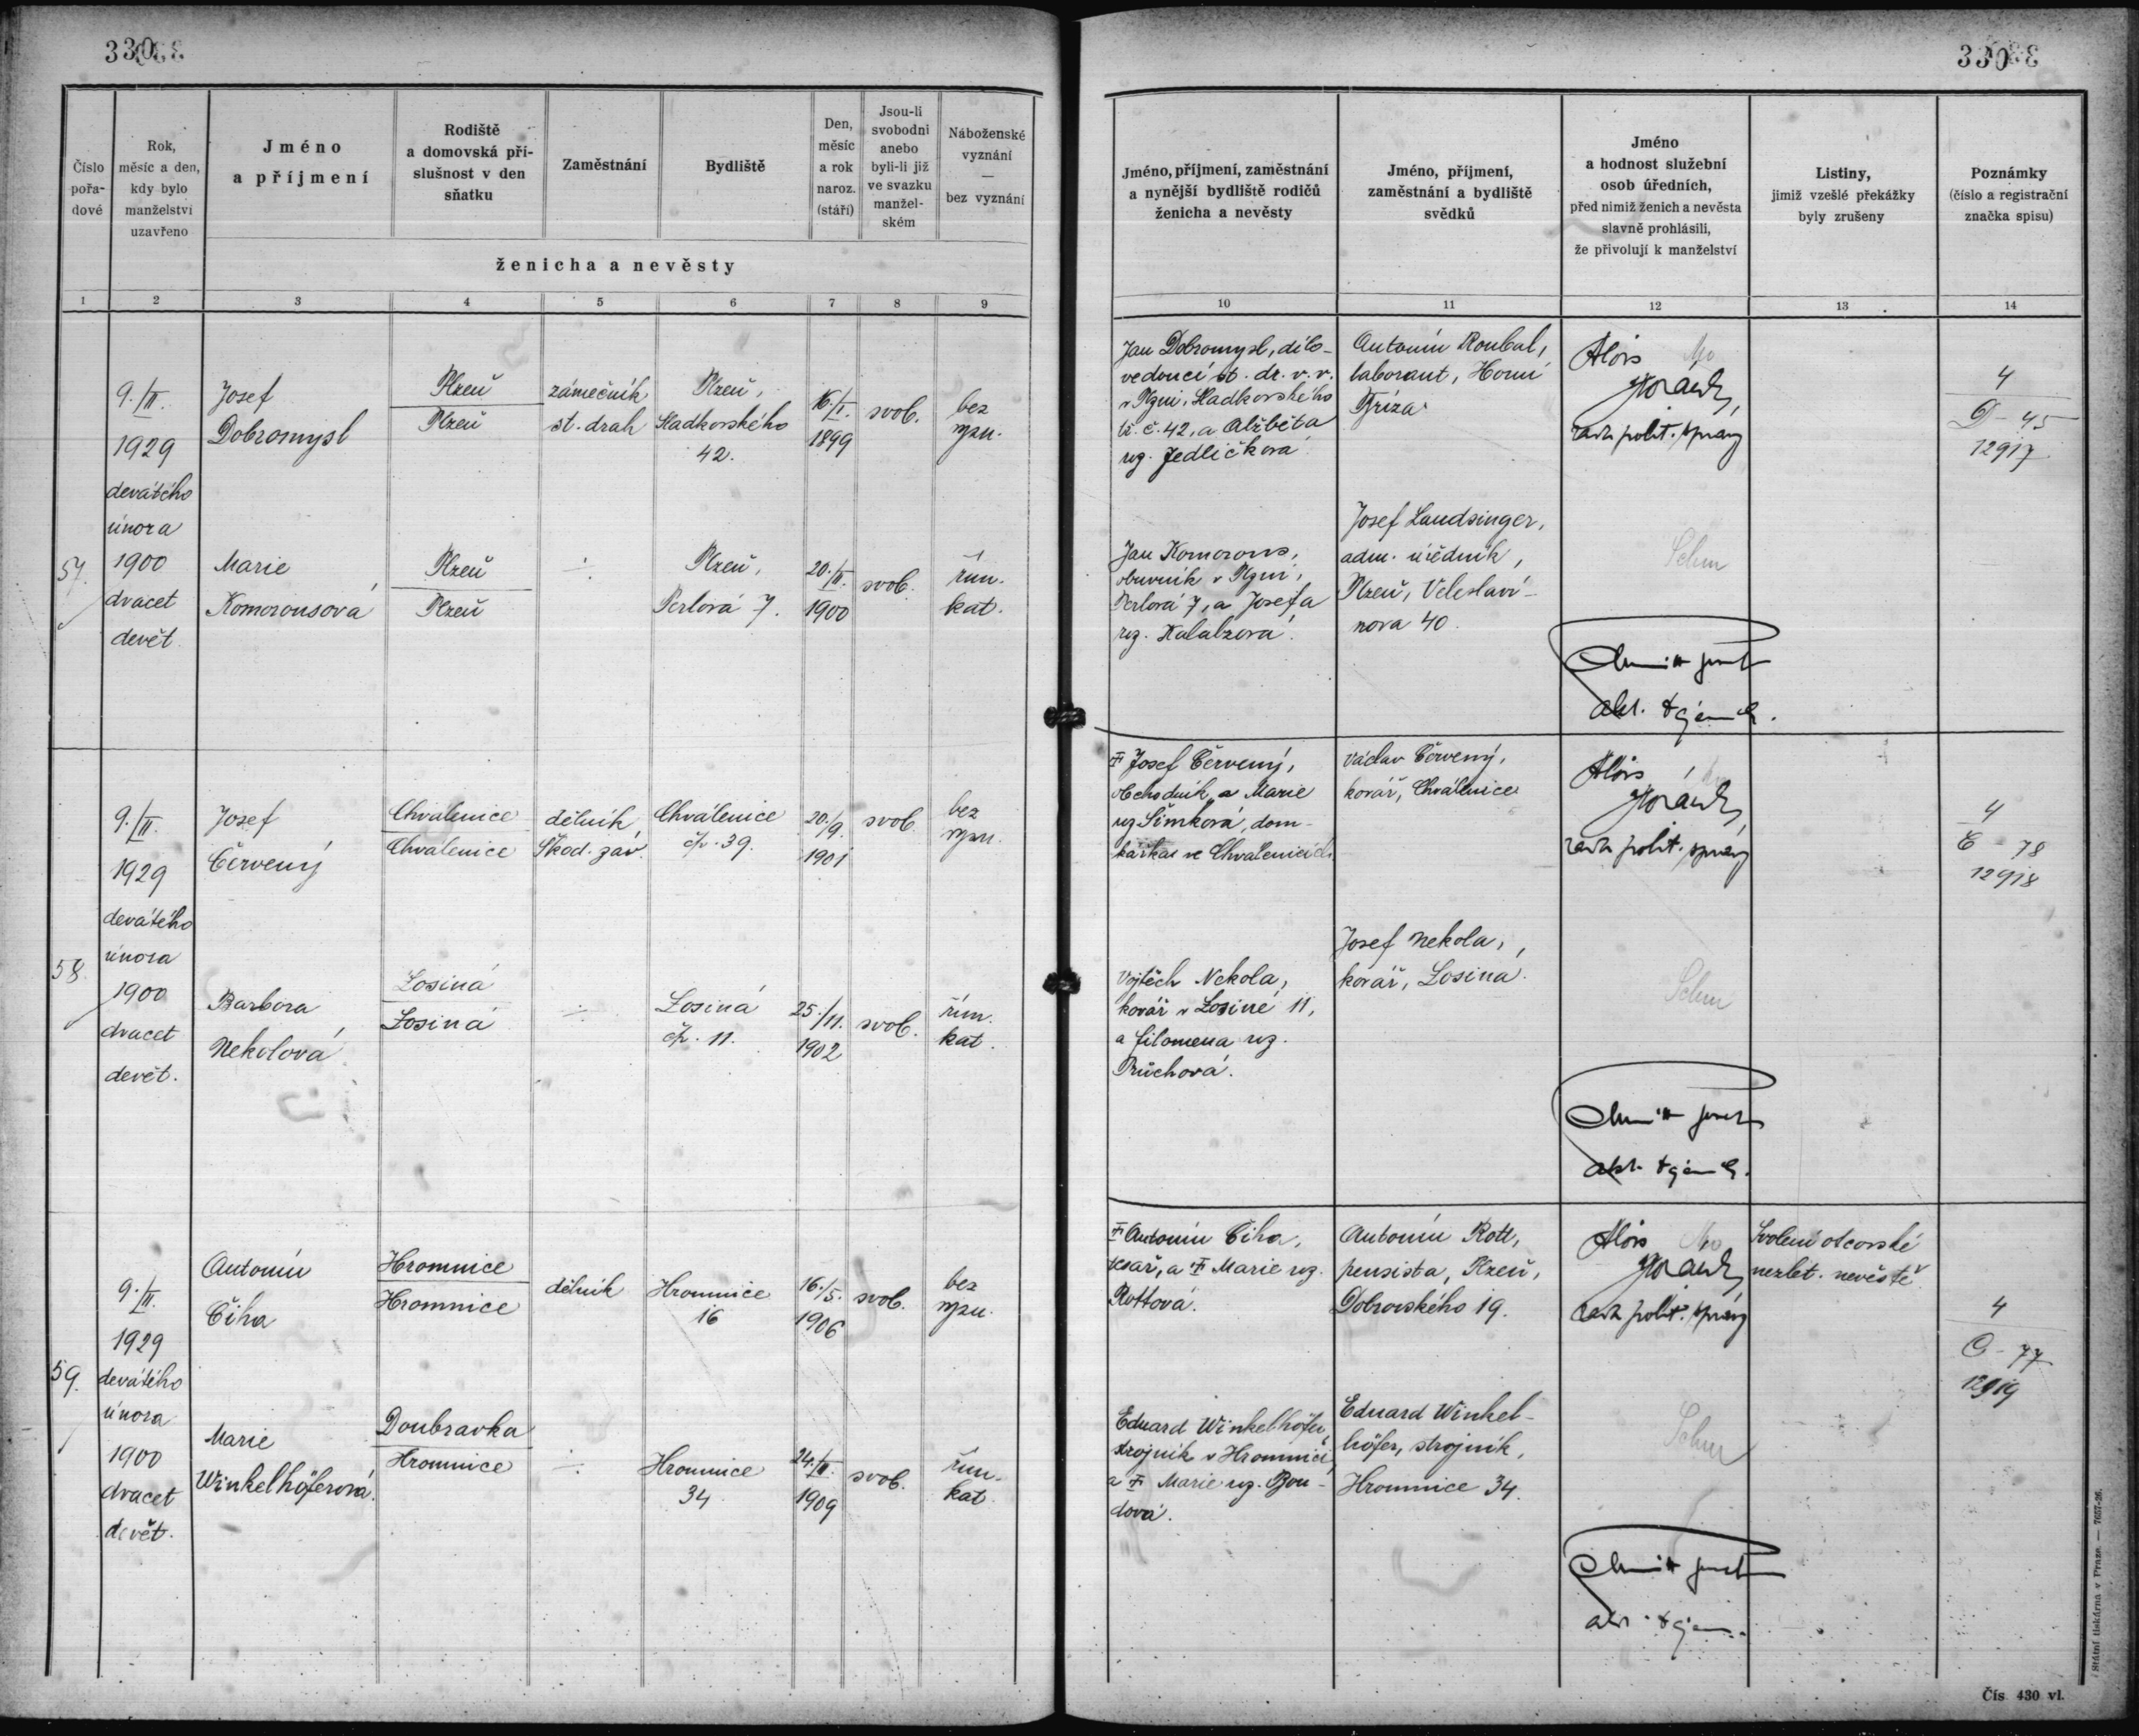 330
330
Číslo
pořa-
dové
Rok,
měsíc a den,
kdy bylo
manželství
uzavřeno
Jméno
a příjmení
Rodiště
a domovská pří-
slušnost v den
sňatku
Zaměstnání
Bydliště
Den,
měsíc
a rok
naroz.
(stáří)
Jsou-li
svobodni
anebo
byli-li již
ve svazku
manžel-
ském
Náboženské
vyznání
—
bez vyznání
ženicha a nevěsty
Jméno, příjmení, zaměstnání
a nynější bydliště rodičů
ženicha a nevěsty
Jméno, příjmení,
zaměstnání a bydliště
svědků
Jméno
a hodnost služební
osob úředních,
před nimiž ženich a nevěsta
slavně prohlásili,
že přivolují k manželství
Listiny,
jimiž vzešlé překážky
byly zrušeny
Poznámky
(číslo a registrační
značka spisu)
1 2 3 4 5 6 7 8 9 10 11 12 13 14
57.
9./II.
1929
devátého
února
1900
dvacet
devět
Josef
Dobromysl
Plzeň
Plzeň
zámečník
st. drah
Plzeň,
Sladkovského
42.
16./I.
1899
svob.
bez
vyzn.
Marie
Komorousová
Plzeň
Plzeň
÷
Plzeň,
Perlová 7.
20./II.
1900
svob.
řím.
kat.
Jan Dobromysl, dílo-
vedoucí st. dr. v. v.
v Plzni, Sladkovského
tř. č. 42, a Alžběta
roz. Jedličková.
Jan Komorous,
obuvník v Plzni,
Perlová 7, a Josefa
roz. Kalalzová.
Antonín Roubal,
laborant, Horní
Bříza
Josef Landsinger,
adm. úředník,
Plzeň, Veleslaví-
nova 40.
Alois
Horák,
rada polit. správy
Schm
4
D - 45
12917
58.
9./II.
1929
devátého
února
1900
dvacet
devět.
Josef
Červený
Chválenice
Chválenice
dělník
Škod. záv.
Chválenice
čp. 39.
20./9.
1901
svob.
bez
vyzn.
Barbora
Nekolová
Losiná
Losiná
÷
Losiná
čp. 11.
25./11.
1902
svob.
řím.
kat.
Josef Červený,
obchodník, a Marie
roz. Šimková, dom-
kářka ve Chválenicích
Vojtěch Nekola,
kovář v Losiné 11,
a Filomena roz.
Průchová.
Václav Červený,
kovář, Chválenice
Josef Nekola,
kovář, Losiná.
Alois
Horák,
rada polit. správy
Schm
4
Č - 78
12918
59.
9./II.
1929
devátého
února
1900
dvacet
devět.
Antonín
Čiha
Hromnice
Hromnice
dělník
Hromnice
16
16./5.
1906
svob.
bez
vyzn.
Marie
Winkelhöferová.
Doubravka
Hromnice
÷
Hromnice
34
24./II.
1909
svob.
řím.
kat.
Antonín Čiha,
tesař, a Marie roz.
Rottová.
Eduard Winkelhöfer,
strojník v Hromnici,
a Marie roz. Bou-
dová.
Antonín Rott,
pensista, Plzeň,
Dobrovského 19.
Eduard Winkel-
höfer, strojník,
Hromnice 34.
Alois
Horák,
rada polit. správy
Schm
Svolení otcovské
nezlet. nevěstě.
4
Č - 77
12919
Státní tiskárna v Praze. — 7657-26.
Čís. 430 vl.